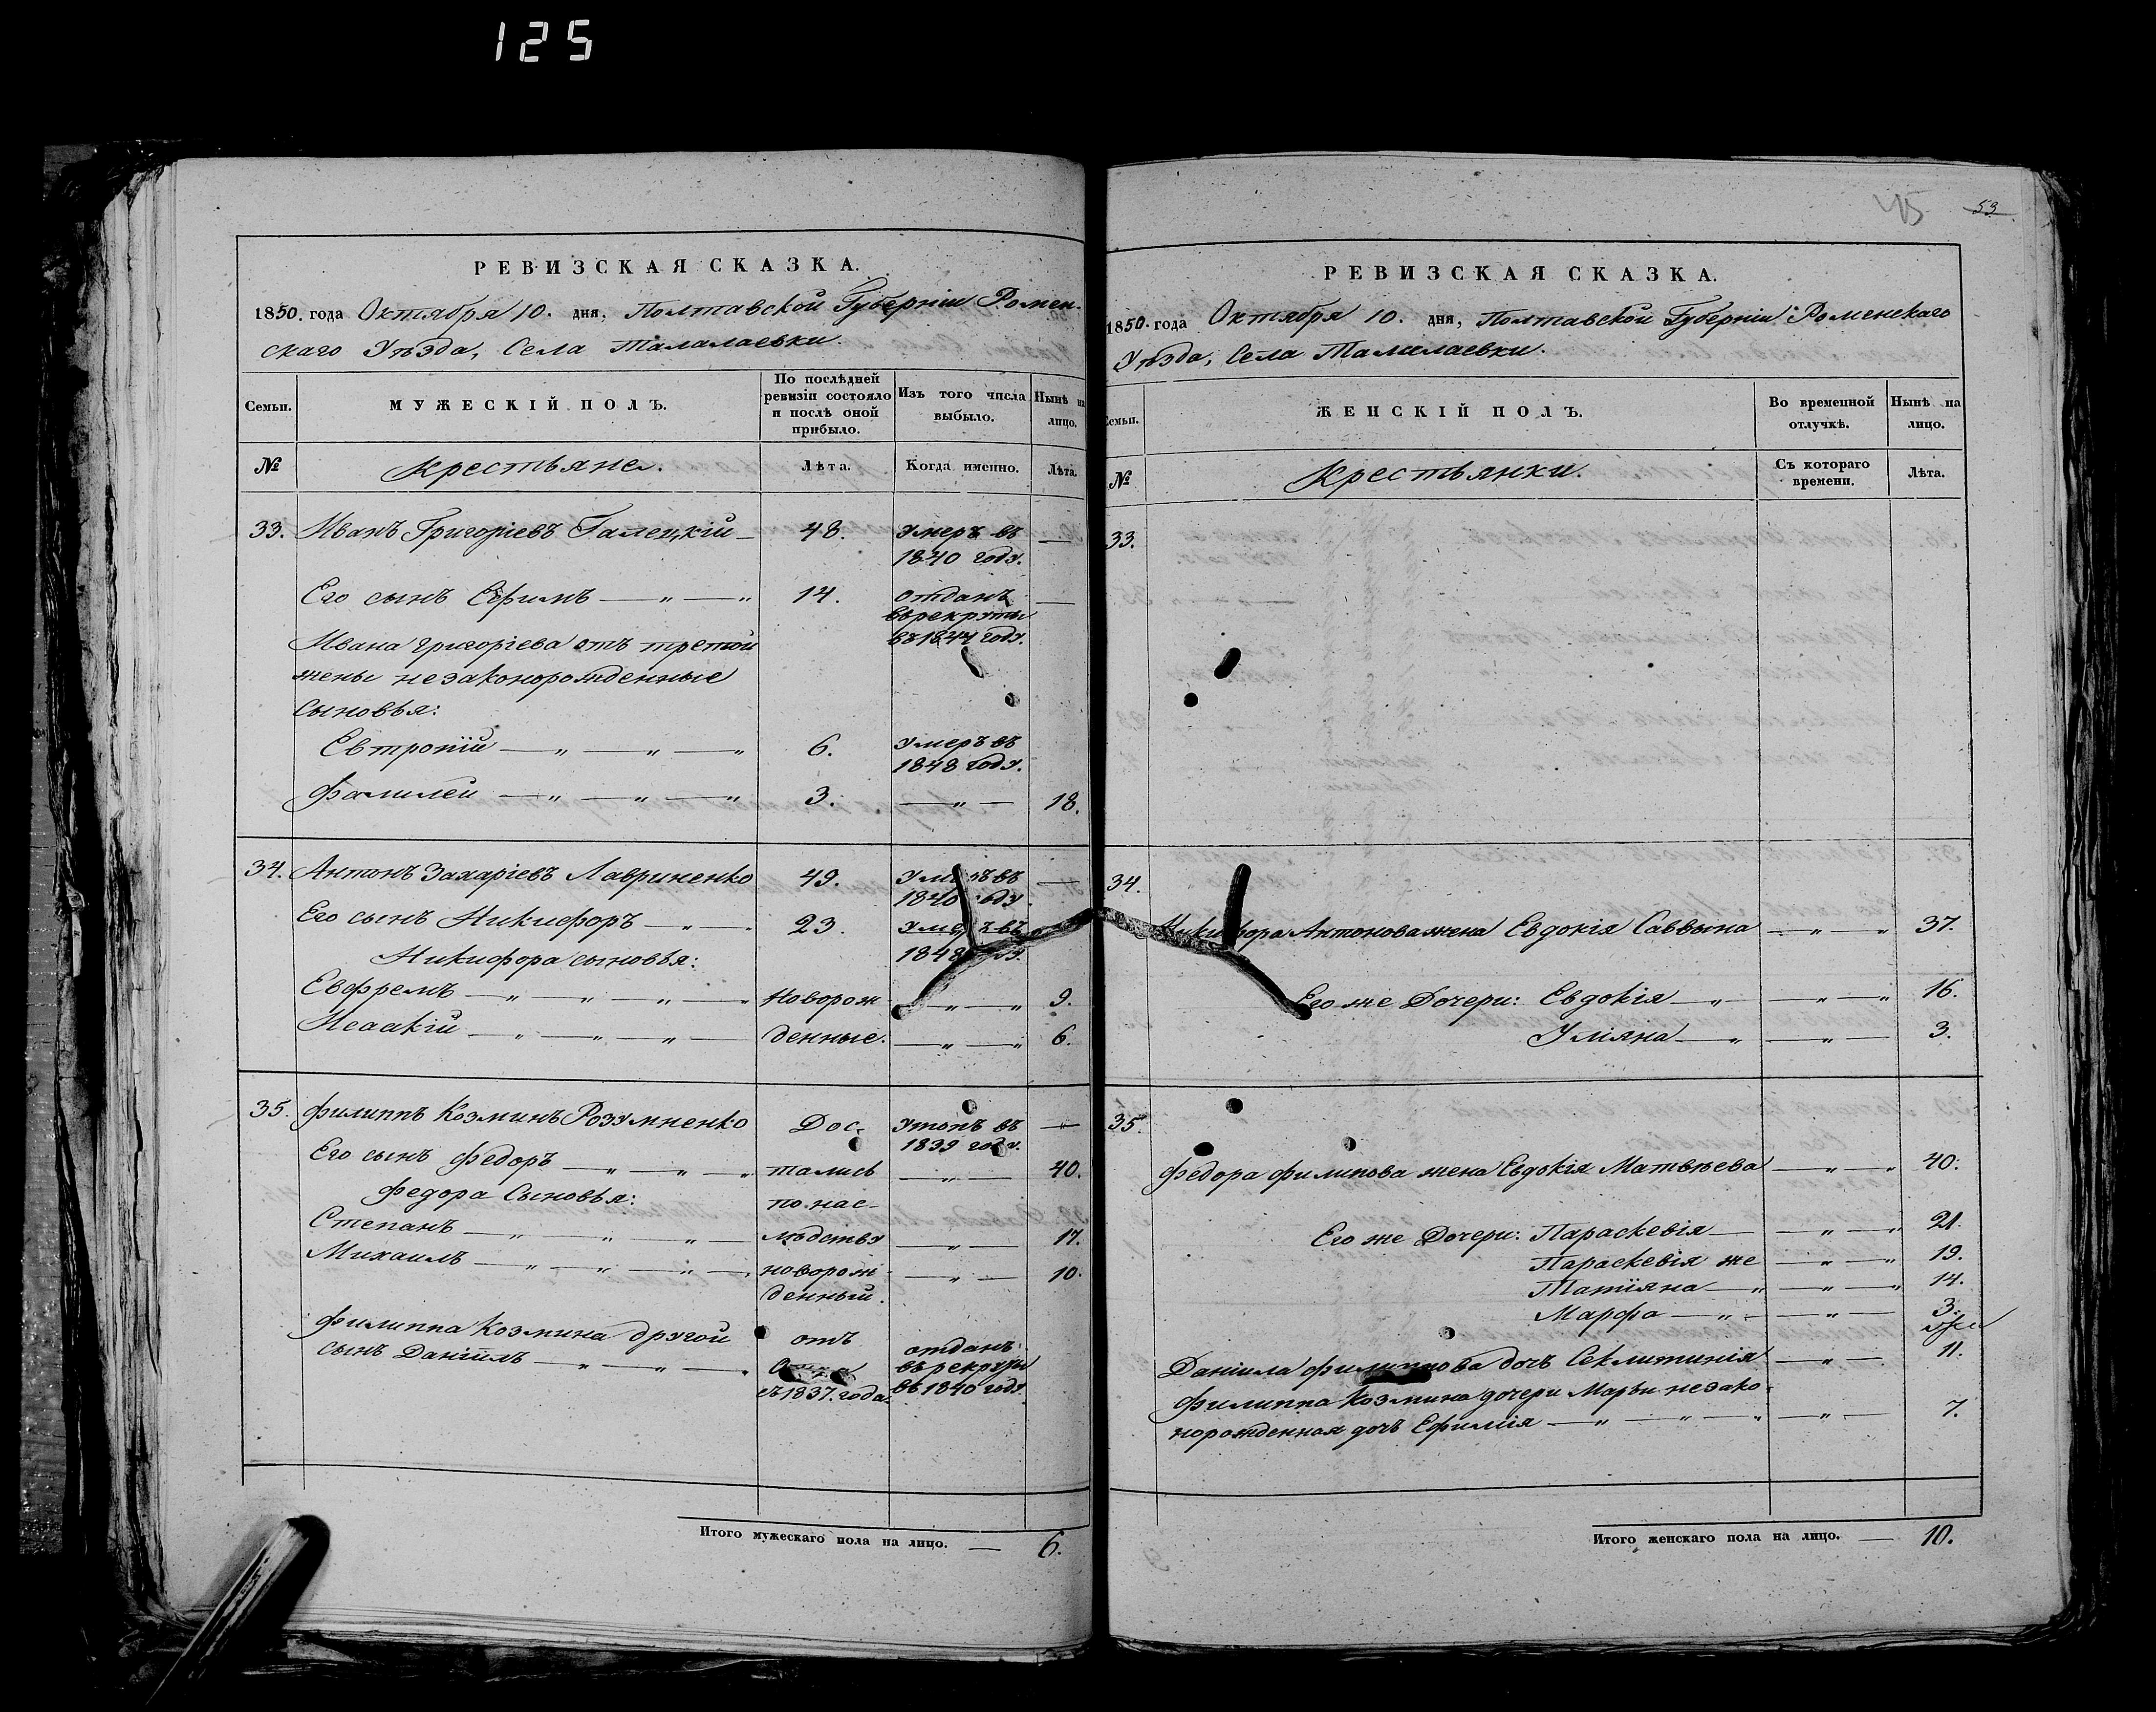 125
РЕВИЗСКАЯ СКАЗКА.
1850. года Октября 10. дня, Полтавской Губерніи Ромен-
скаго Уѣзда, Села Талалаевки.
Семьи. МУЖЕСКІЙ ПОЛЪ. По послѣдней ревизіи состояло и послѣ оной прибыло. Изъ того числа выбыло. Нынѣ на лицо.
№ Крестьяне. Лѣта. Когда именно. Лѣта.
33. Иванъ Григоріевъ Галецкій — 48. умеръ въ —
1840 году.
Его сынъ Ефимъ — „ — „ 14. отданъ —
въ рекруты
Ивана Григоріева отъ третой въ 1844 году.
жены незаконорожденные
Сыновья:
Евтропій — „ — „ — „ 6. умеръ въ
1848 году.
Фалилей — „ — „ — „ 3. — „ — 18.
34. Антонъ Захаріевъ Лавриненко 49. умеръ въ —
1840 году.
Его сынъ Никифоръ — „ — „ 23. умеръ въ
Никифора сыновья: 1848 году.
Евфремъ — „ — „ — „ — „ новорож- — „ — „ 9.
Исаакій — „ — „ — „ — денные. — „ — „ 6.
35. Филиппъ Козминъ Розумненко Дос- утопъ въ —
1839 году.
Его сынъ Федоръ — „ — „ — „ тались — „ — 40.
Федора Сыновья: по нас-
Степанъ — „ — „ — „ — лѣдству — „ — 17.
Михаилъ — „ — „ — „ — „ новорож- — „ — 10.
денный.
Филиппа Козмина другой отъ отданъ
сынъ Даніилъ — „ — „ — „ въ рекруты
съ 1837. года. въ 1840 году
Итого мужескаго пола на лицо. — 6.
45 53
РЕВИЗСКАЯ СКАЗКА.
1850. года Октября 10. дня, Полтавской Губерніи Роменскаго
Уѣзда, Села Талалаевки.
Семьи. ЖЕНСКІЙ ПОЛЪ. Во временной отлучкѣ. Нынѣ на лицо.
№ Крестьянки. Съ котораго времени. Лѣта.
33.
34.
Никифора Антонова жена Евдокія Саввына — „ — „ 37.
Его же Дочери: Евдокія — „ — „ — „ 16.
Уліяна — „ — „ — 3.
35.
Федора Филипова жена Евдокія Матвѣева — „ — „ 40.
Его же Дочери: Параскевія — — „ — „ 21.
Параскевія же — „ — „ 19.
Татіяна — „ — „ — „ 14.
Марфа — „ — „ — 3.
Даніила Филиппова дочь Секлитинія — „ — 11.
Филиппа Козмина дочери Марьи незако-
норожденная дочь Ефимія — „ — „ — „ — „ — 7.
Итого женскаго пола на лицо. — 10.